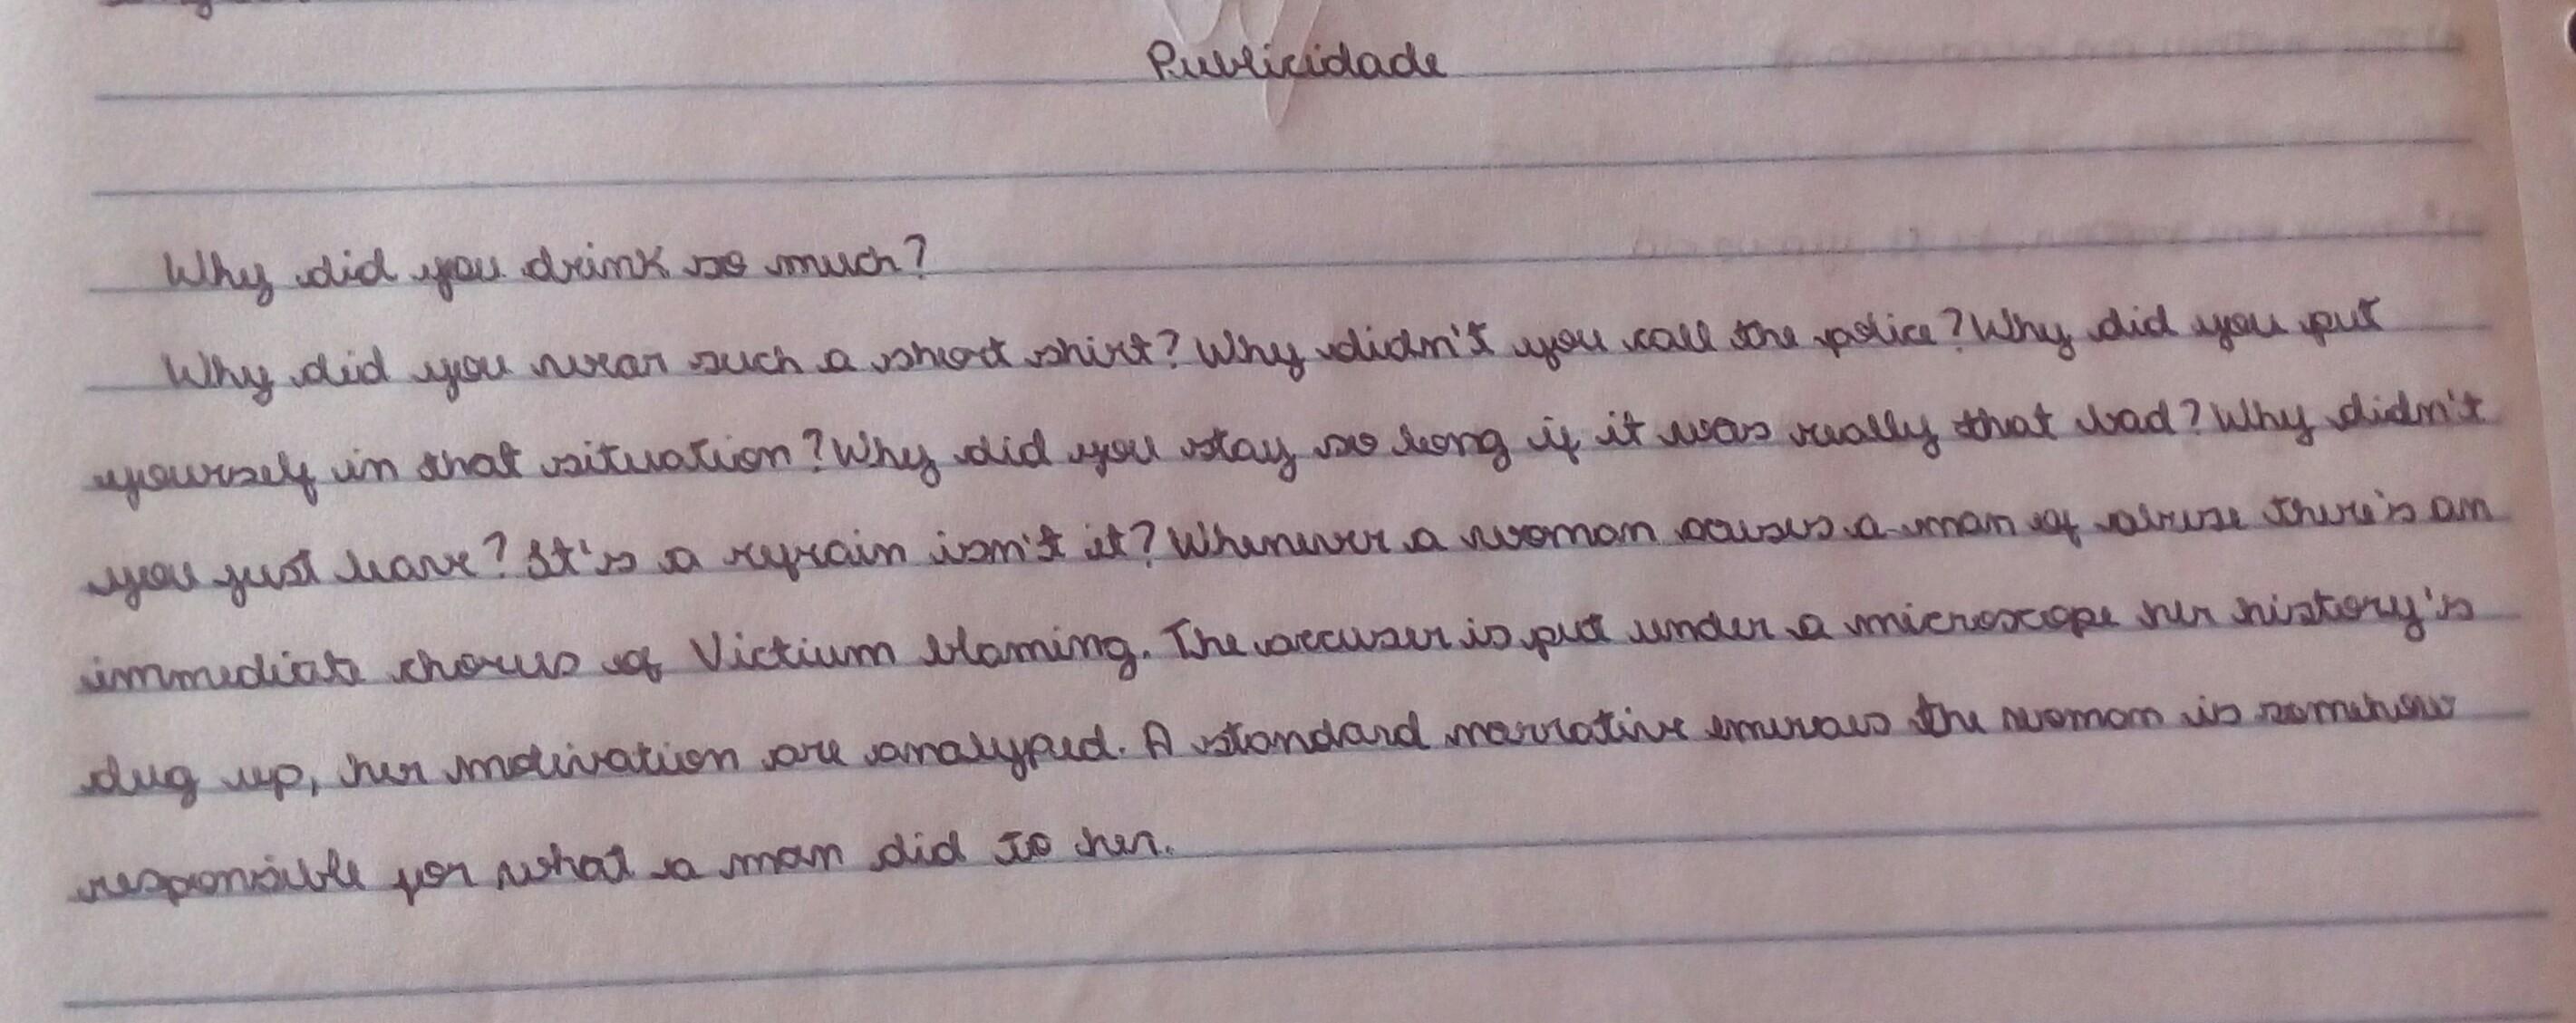 Publicidade
Why did you drink so much?
Why did you wear such a short shirt? Why didn't you call the police? Why did you put
yourself in that situation? Why did you stay so long if it was really that bad? Why didn't
you just leave? It's a refrain isn't it? Whenever a woman a man of abuse there's an
immediate chorus of Victium blaming. The accuser is put under a microscope her history's
dug up, her motivation are analyzed. A standard narrative the woman is somehow
responsible for what a man did to her.